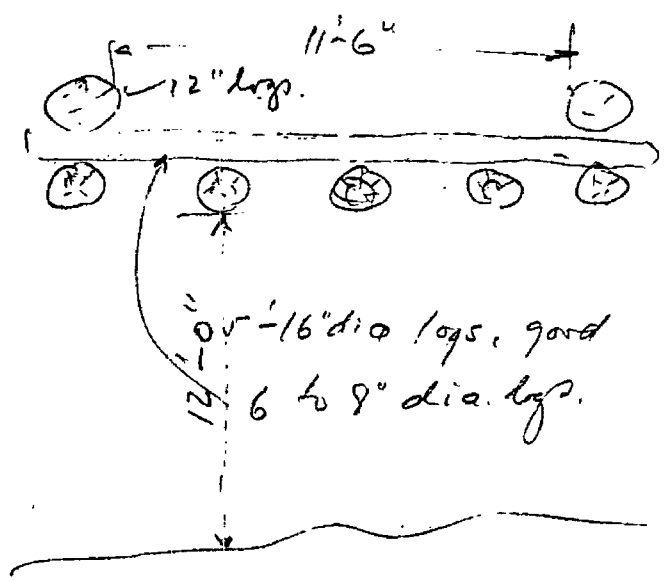 11'-6"
12" logs.
12'-0"
5-16" dia logs, good
6 to 8" dia. logs.